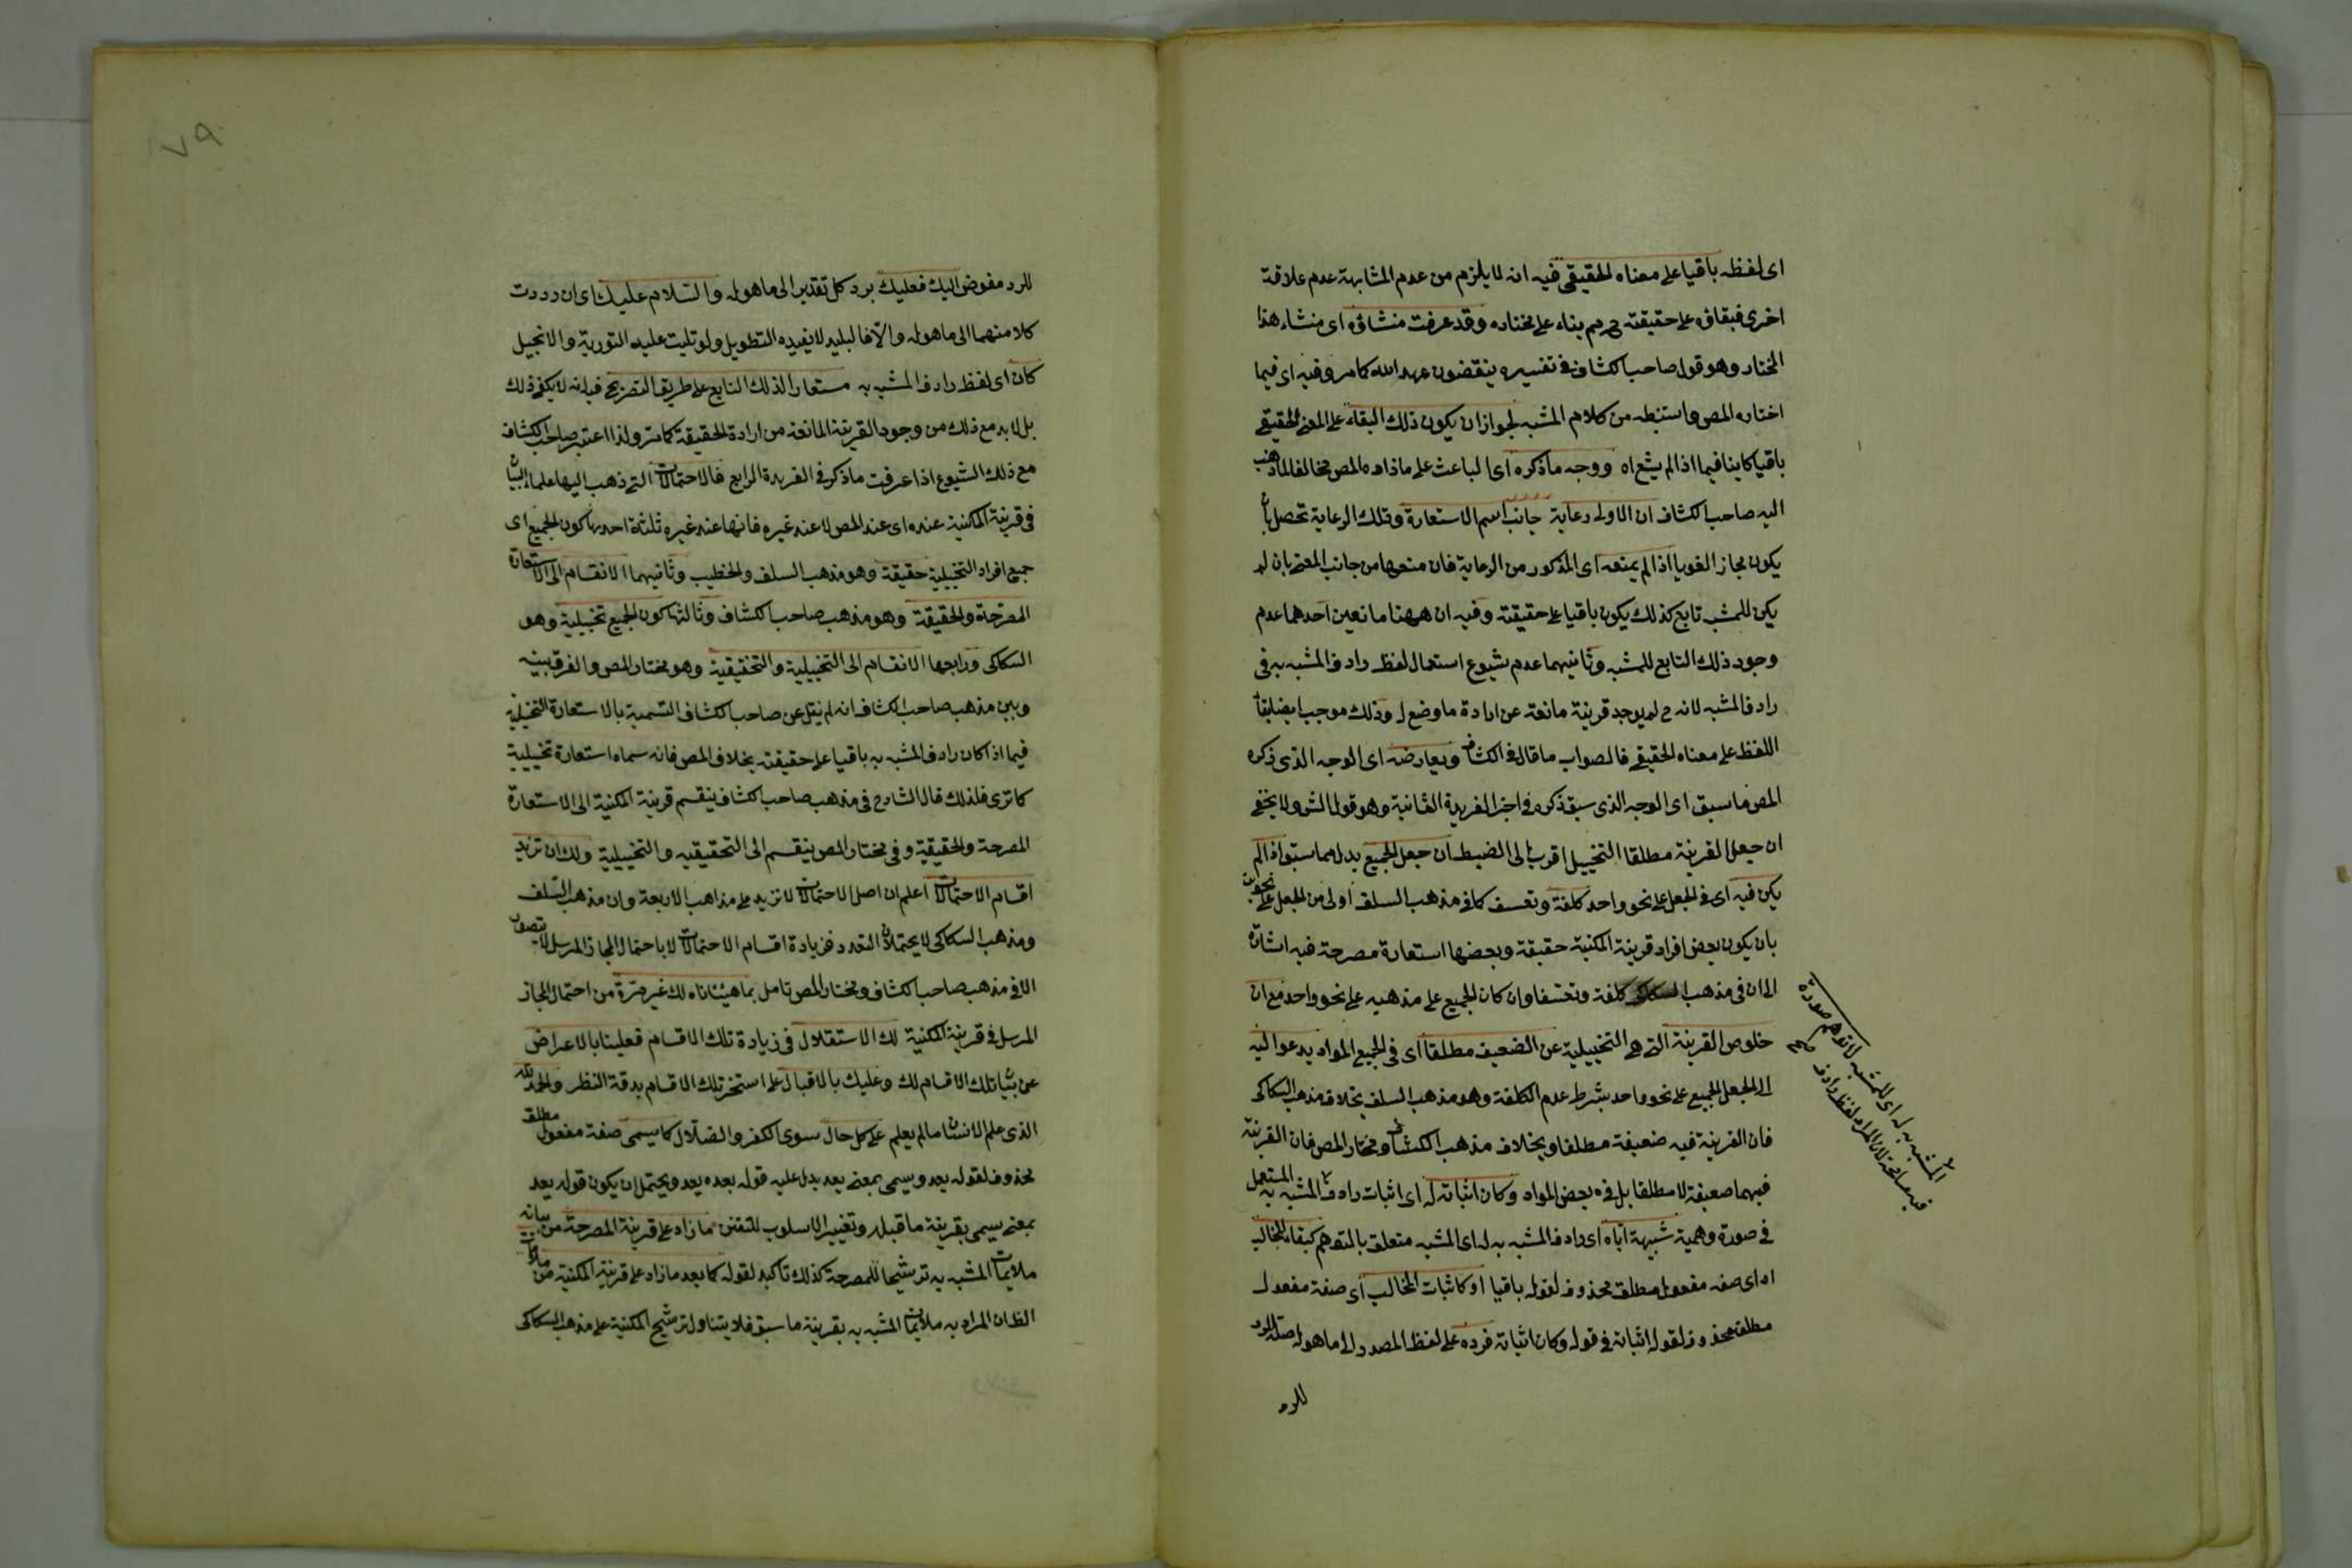 اى لفظه باقيا على معناه الحقيقى فيه انه لا يلزم من عدم المشابهة عدم علاقة
اخرى فبقاؤه على حقيقته ح م بناء على مختاره وقد عرفت منشاؤه اى منشاء هذا
المختار وهو قول صاحب الكشاف فى تفسيره ينقضون عهد الله كما مر وفيه اى فيما
اختاره المص واستنبطه من كلام المشبه لجواز ان يكون ذلك البقاء على المعنى الحقيقى
باقيا كاينا فيما اذا لم يشع اه ووجه ما ذكره اى الباعث على ما ذاده المص مخالفا لما ذهب
اليه صاحب الكشاف ان الاولى رعاية جانب اسم الاستعارة وتلك الرعاية تحصل بان
يكون مجازا لغويا اذا لم يمنعه اى المذكور من الرعاية فان منعها من جانب المعنى بان لم
يكن للمشبه تابع كذلك يكون باقيا على حقيقته وفيه ان ههنا مانعين احدهما عدم
وجود ذلك التابع للمشبه وثانيهما عدم شيوع استعمال لفظ رادف المشبه به فى
رادف المشبه لانه ح لم يوجد قرينة مانعة عن ارادة ما وضع له وذلك موجب ايضا لبقاء
اللفظ على معناه الحقيقى فالصواب ما قال فى الكشاف ويعارضه اى الوجه الذى ذكره
المص ما سبق اى الوجه الذى سبق ذكره فى اخر الفريدة الثانية وهو قول الش ولا يخفى
ان جعل القرينة مطلقا التخييل اقرب الى الضبط ان جعل الجميع بدل مما سبق اذا لم
يكن فيه اى فى الجعل على نحو واحد كلفة وتعسف كما فى مذهب السلف اولى من الجعل على نحوين
بان يكون بعض افراد قرينة المكنية حقيقة وبعضها استعارة مصرحة فيه اشارة
الى ان فى مذهب السكاكى كلفة وتعسفا وان كان الجميع على مذهبه على نحو واحد مع ان
خلوص القرينة التى هى التخييلية عن الضعيف مطلقا اى فى الجميع المواد يدعو اليه
الى الجعل الجميع على نحو واحد بشرط عدم الكلفة وهو مذهب السلف بخلاف مذهب السكاكى
فان القرينة فيه ضعيفة مطلقا وبخلاف مذهب الكشاف ومختار المص فان القرينة
فيهما ضعيفة لا مطلقا بل فى بعض المواد وكان اثباته له اى اثبات رادف المشبه به المستعمل
فى صورة وهمية شبيهة اياه اى رادف المشبه به له اى المشبه متعلق بالتوهم كبقاء المخالب
اه اى صفة مفعول مطلق محذوف لقوله باقيا او كاثبات المخالب اى صفة مفعول
مطلق محذوف لقوله اثباته فى قوله وكان اثباته فرده على لفظ المصدر الى ما هو له صلة الرد
للرد
المشبه به له اى للمشبه لا توهم صورة
فيه مسامحة لان المراد لفظ رادف
٧٩
للرد مفوض اليك فعليك برد كل تقدير الى ما هو له والسلام عليك اى ان رددت
كلا منهما الى ما هو له والا فالبليد لا يفيده التطويل ولو تليت عليه التورية والانجيل
كان اى لفظ رادف المشبه به مستعارا لذلك التابع على طريق التصريح فيه انه لا يكفى ذلك
بل لا بد مع ذلك من وجود القرينة المانعة من ارادة الحقيقة كما مر ولذا اعتبر صاحب الكشاف
مع ذلك الشيوع اذا عرفت ما ذكر فى الفريدة الرابع فالاحتمالات التى ذهب اليها علماء البيان
فى قرينة المكنية عنده اى عند المص لا عند غيره فانها عند غيره ثلثة احدها كون الجميع اى
جميع افراد التخييلية حقيقة وهو مذهب السلف والخطيب وثانيهما الانقسام الى الاستعارة
المصرحة والحقيقة وهو مذهب صاحب الكشاف وثالثها كون الجميع تخييلية وهو
السكاكى ورابعها الانقسام الى التخييلية والتحقيقية وهو مختار المص والفرق بينه
وبين مذهب صاحب الكشاف انه لم ينقل عن صاحب الكشاف التسمية بالاستعارة التخييلية
فيما اذا كان رادف المشبه به باقيا على حقيقته بخلاف المص فانه سماه استعارة تخييلية
كما ترى فلذلك قال الشارح فى مذهب صاحب الكشاف ينقسم قرينة المكنية الى الاستعارة
المصرحة والحقيقية وفى مختار المص ينقسم الى التحقيقيه والتخييلية ولك ان تزيد
اقسام الاحتمالات اعلم ان اصل الاحتمالات لا تزيد على مذاهب الاربعة وان مذهب السلف
ومذهب السكاكى لا يحتملان التعدد فزيادة اقسام الاحتمالات لا باحتمال المجاز المرسل لا يتصور
الا فى مذهب صاحب الكشاف ومختار المص تامل بما هيئناه لك غير مرة من احتمال المجاز
المرسل فى قرينة المكنية لك الاستقلال فى زيادة تلك الاقسام فعلينا بالاعراض
عن بيان تلك الاقسام لك وعليك بالاقبال على استخرتلك الاقسام بدقة النظر والحمد لله
الذى علم الانسان ما لم يعلم على كل حال سوى الكفر والضلال كما يسمى صفة مفعول مطلق
محذوف لقوله يعد ويسمى بمعنى يعد يدل عليه قوله بعده يعد ويحتمل ان يكون قوله يعد
بمعنى يسمى بقرينة ما قبله وتغيير الاسلوب للتفنن ما زاد على قرينة المصرحة من بيانه
ملايمات المشبه به ترشيحا للمصرحة كذلك تاكيد لقوله كما يعد ما زاد على قرينة المكنية من ملايمات
الظ ان المراد به ملايمات المشبه به بقرينة ما سبق فلا يتناول ترشيح المكنية على مذهب السكاكى